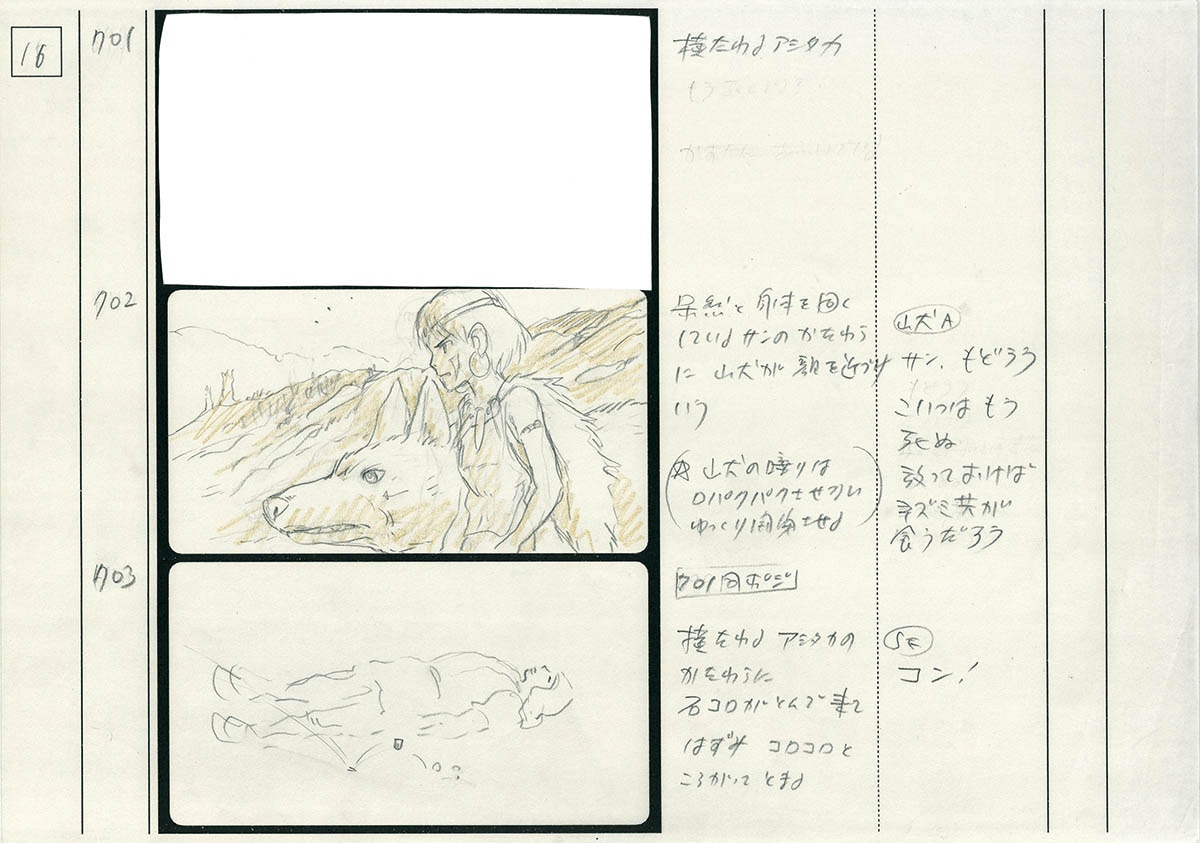 16
701
横たわるアシタカ
702
呆然と身体を固く
しているサンのかたわら
に 山犬が顔を近づけ
いう
(☆ 山犬の喋りは
口パクパクさせない
ゆっくり開閉させる)
山犬A
サン、もどろう
こいつはもう
死ぬ
放っておけば
ネズミ共が
食うだろう
703
701同ポジ
横たわる アシタカの
かたわらに
石コロがとんで来て
はずみ コロコロと
ころがってとまる
SE
コン!